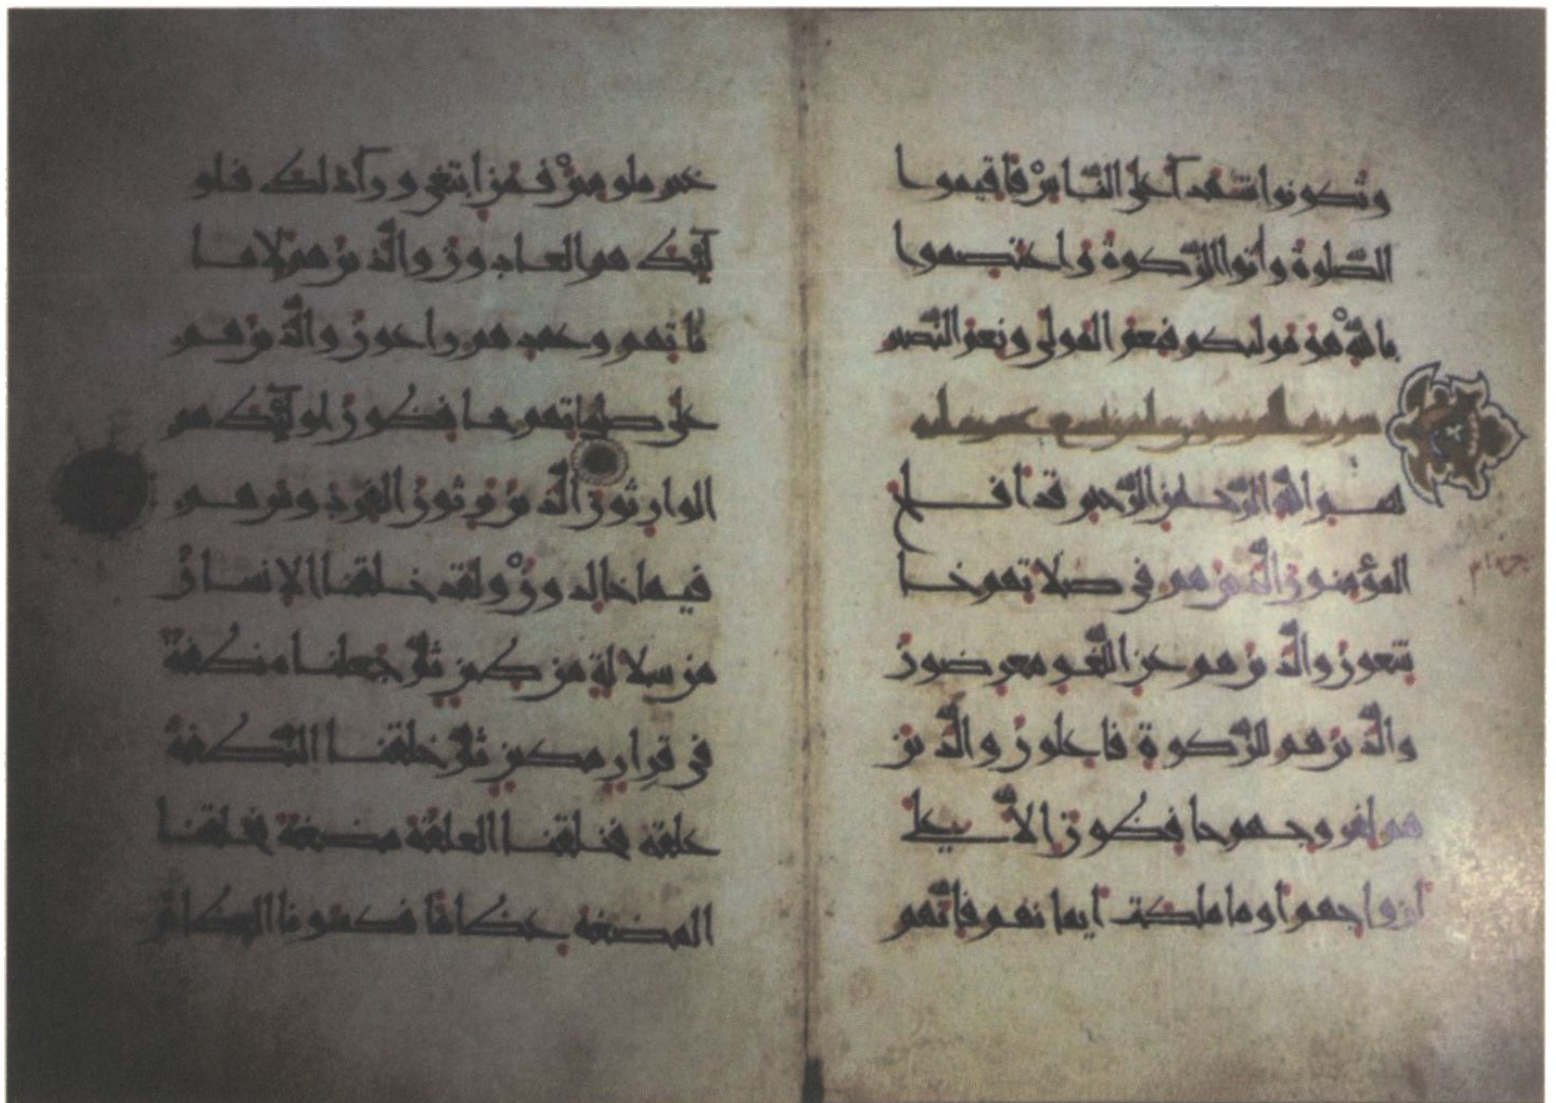 وتكونوا شهدآ على الناس فاقيموا
الصلوة وآتوا الزكوة واعتصموا
بالله هو موليكم فنعم المولى ونعم النصير
بسم الله الرحمن الرحيم قد افلح
المؤمنون الذين هم في صلاتهم خا
شعون والذين هم عن اللغو معرضون
والذين هم للزكوة فاعلون والذين
هم لفروجهم حافظون الا على
ازواجهم او ما ملكت ايمانهم فانهم
غير ملومين فمن ابتغى ورآ ذلك فاو
لئك هم العادون والذين هم لاما
ناتهم وعهدهم راعون والذين هم
على صلواتهم يحافظون اولئك هم
الوارثون الذين يرثون الفردوس هم
فيها خالدون ولقد خلقنا الانسان
من سلالة من طين ثم جعلناه نطفة
في قرار مكين ثم خلقنا النطفة
علقة فخلقنا العلقة مضغة فخلقنا
المضغة عظاما فكسونا العظام